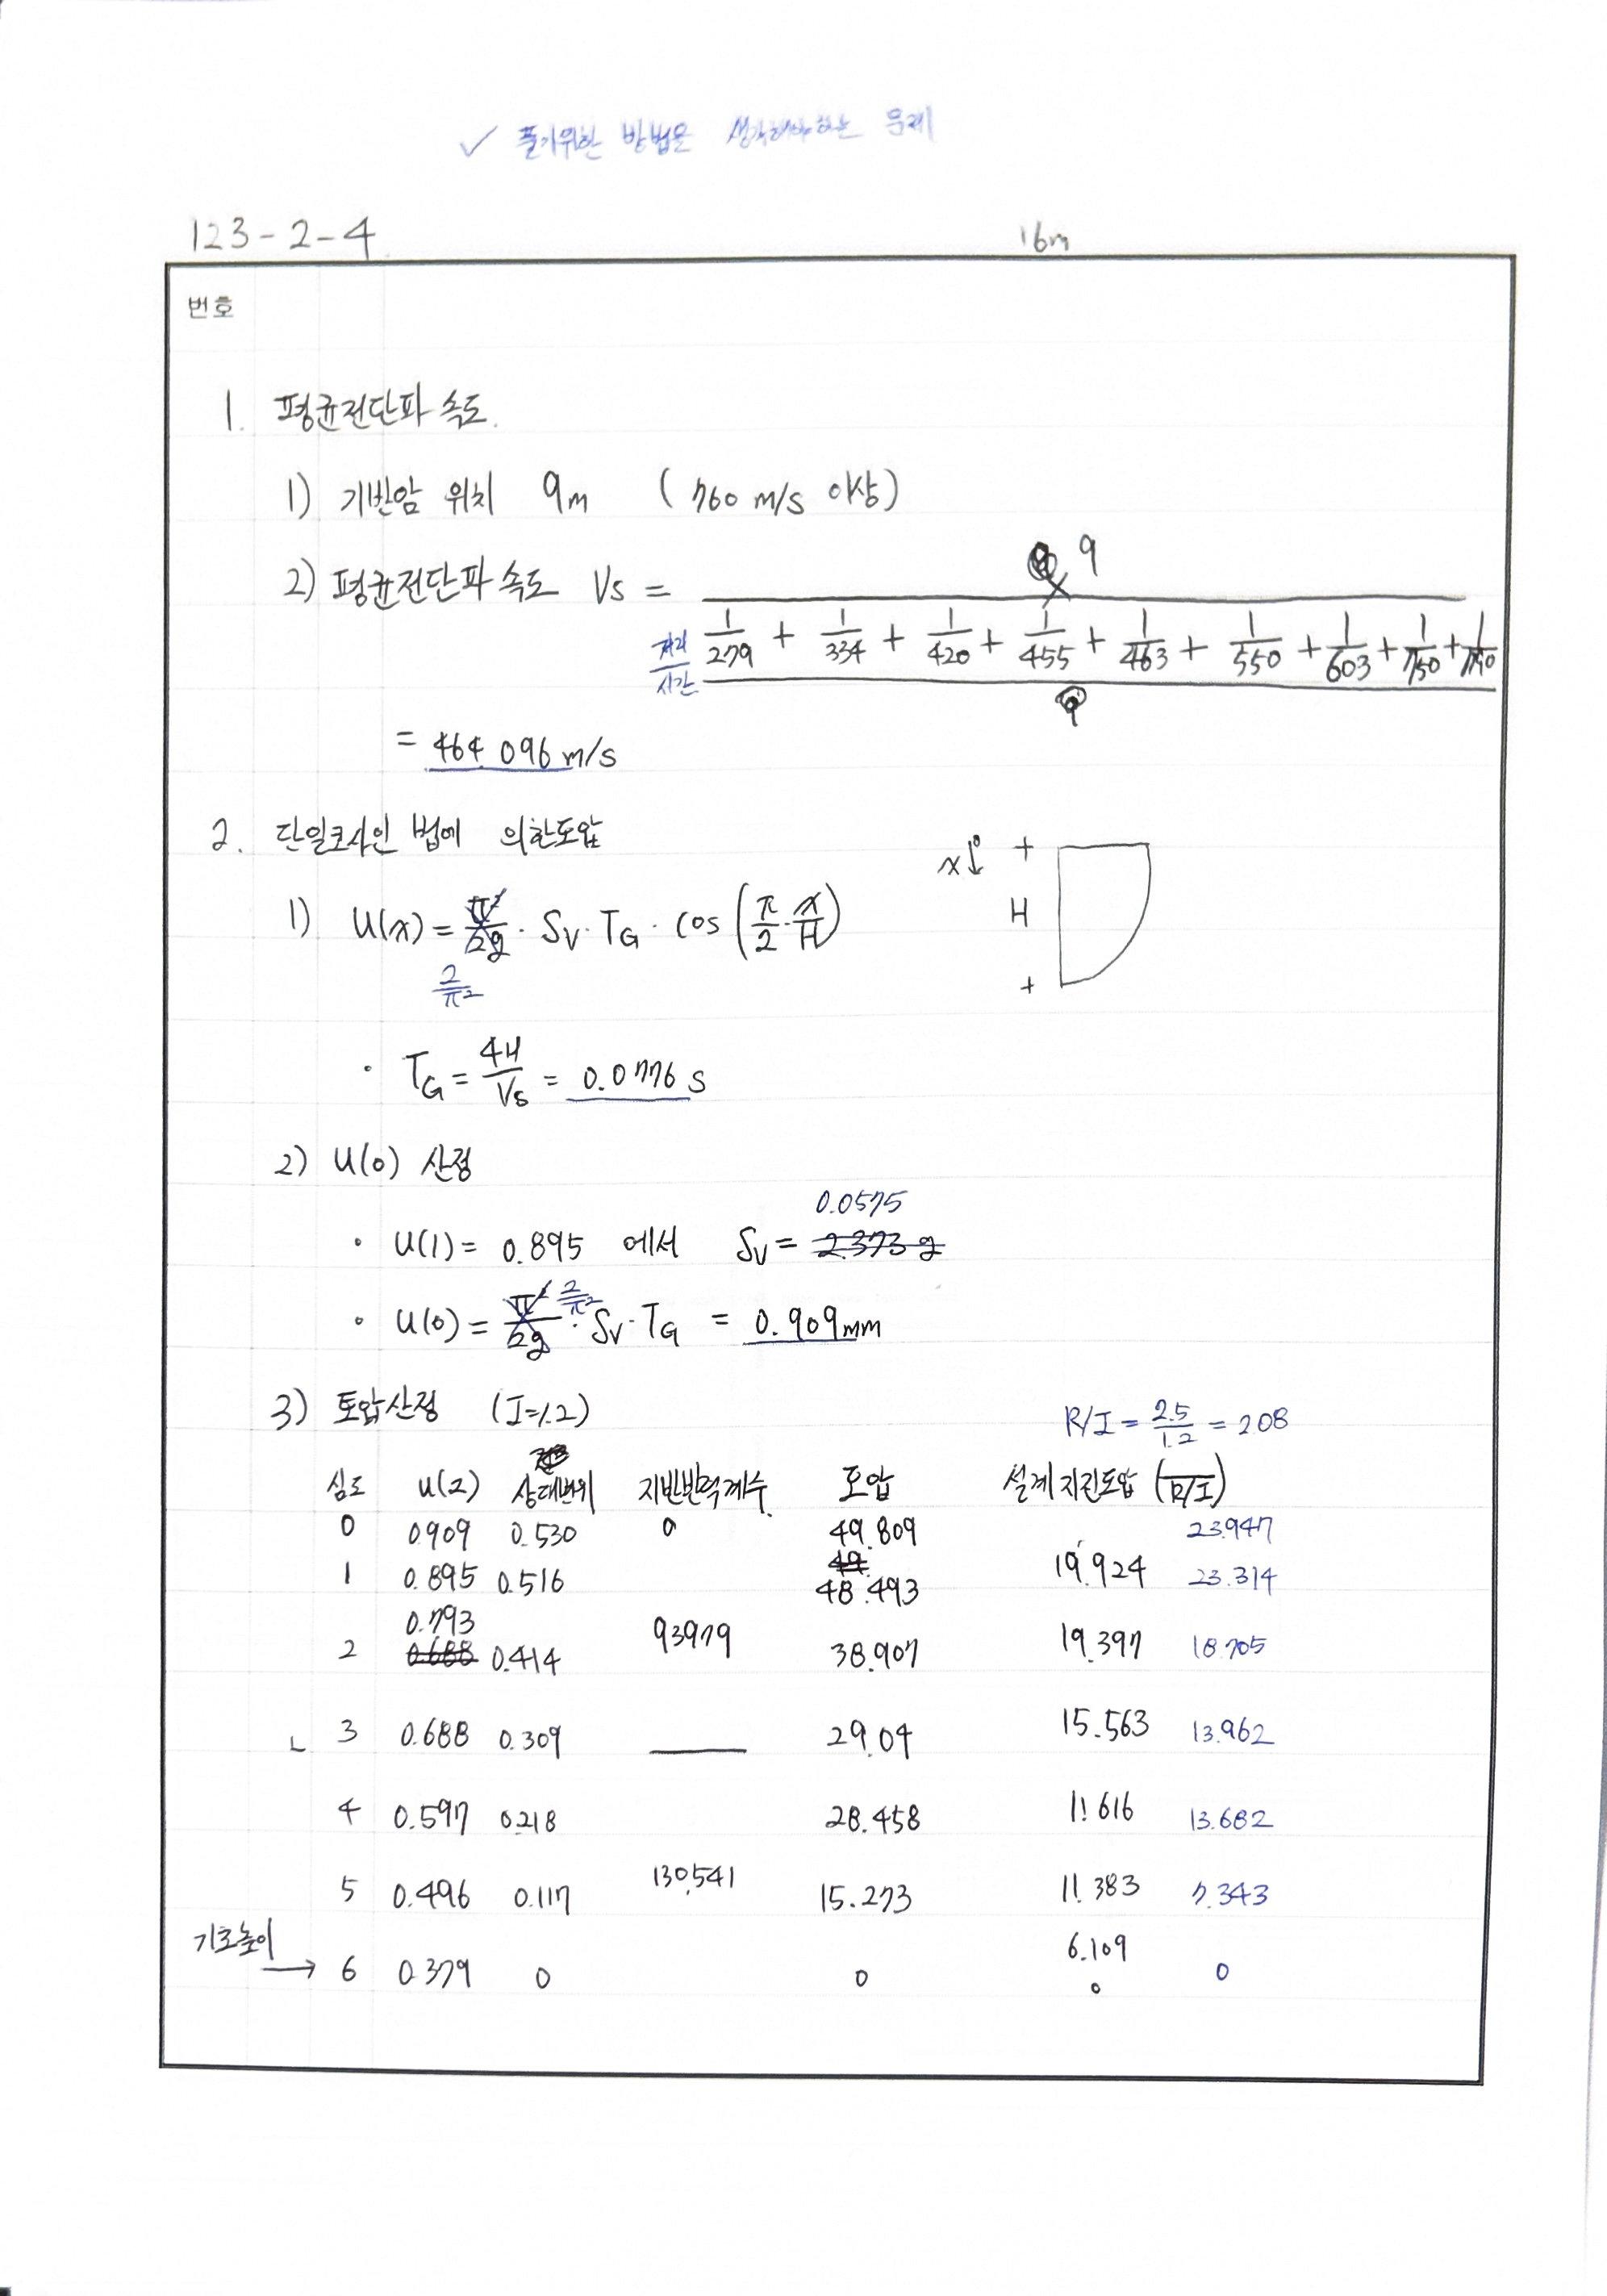 ✓ 풀기위한 방법을 생각해야하는 문제
123-2-4
16m
번호
1. 평균전단파 속도.
1) 기반암 위치 9m (760 m/s 이상)
2) 평균전단파 속도 Vs = 9 / (1/279 + 1/334 + 1/420 + 1/455 + 1/463 + 1/550 + 1/603 + 1/750 + 1/750)
거리/시간
= 464.096 m/s
2. 단일코사인 법에 의한토압
1) U(x) = 2/π² · Sv · TG · cos(π/2 · x/H)
x↓ H
· TG = 4H/Vs = 0.0776 s
2) U(0) 산정
· U(1) = 0.895 에서 Sv = 0.0575
· U(0) = 2/π² · Sv · TG = 0.909mm
3) 토압산정 (I=1.2) R/I = 2.5/1.2 = 2.08
심도 U(z) 상대변위 지반반력계수. 토압 설계지진토압 (/R/I)
0 0.909 0.530 49.809 23.947
1 0.895 0.516 48.493 19.924 23.314
2 0.793 0.414 93979 38.907 19.397 18.705
3 0.688 0.309 29.04 15.563 13.962
4 0.597 0.218 28.458 11.616 13.682
5 0.496 0.117 130,541 15.273 11.383 7.343
기초높이 → 6 0.379 0 0 6.109 0 0